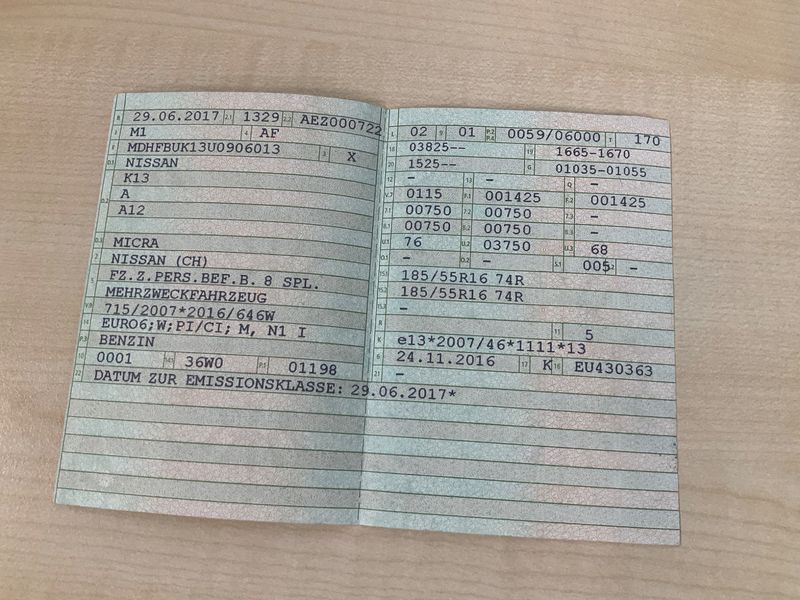 B 29.06.2017 2.1 1329 2.2 AEZ000722
J M1 4 AF
E MDHFBUK13U0906013 3 X
D.1 NISSAN
K13
D.2 A
A12
D.3 MICRA
2 NISSAN (CH)
5 FZ.Z.PERS.BEF.B. 8 SPL.
MEHRZWECKFAHRZEUG
V.9 715/2007*2016/646W
14 EURO6;W;PI/CI; M, N1 I
P.3 BENZIN
10 0001 14.1 36W0 P.1 01198
22 DATUM ZUR EMISSIONSKLASSE: 29.06.2017*
L 02 9 01 P.2 P.4 0059/06000 T 170
18 03825-- 19 1665-1670
20 1525-- G 01035-01055
12 - 13 - Q -
V.7 0115 F.1 001425 F.2 001425
7.1 00750 7.2 00750 7.3 -
8.1 00750 8.2 00750 8.3 -
U.1 76 U.2 03750 U.3 68
O.1 - O.2 - S.1 005 S.2 -
15.1 185/55R16 74R
15.2 185/55R16 74R
15.3 -
R 11 5
K e13*2007/46*1111*13
6 24.11.2016 17 K 16 EU430363
21 -